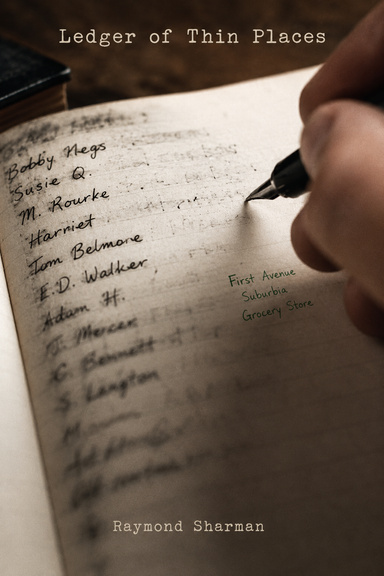 Ledger of Thin Places
Bobby Negs
Susie Q.
M. Rourke
Harriet
Tom Belmore
E.D. Walker
Adam H.
J. Mercer
C. Bennett
S. Langton
First Avenue
Suburbia
Grocery Store
Raymond Sharman